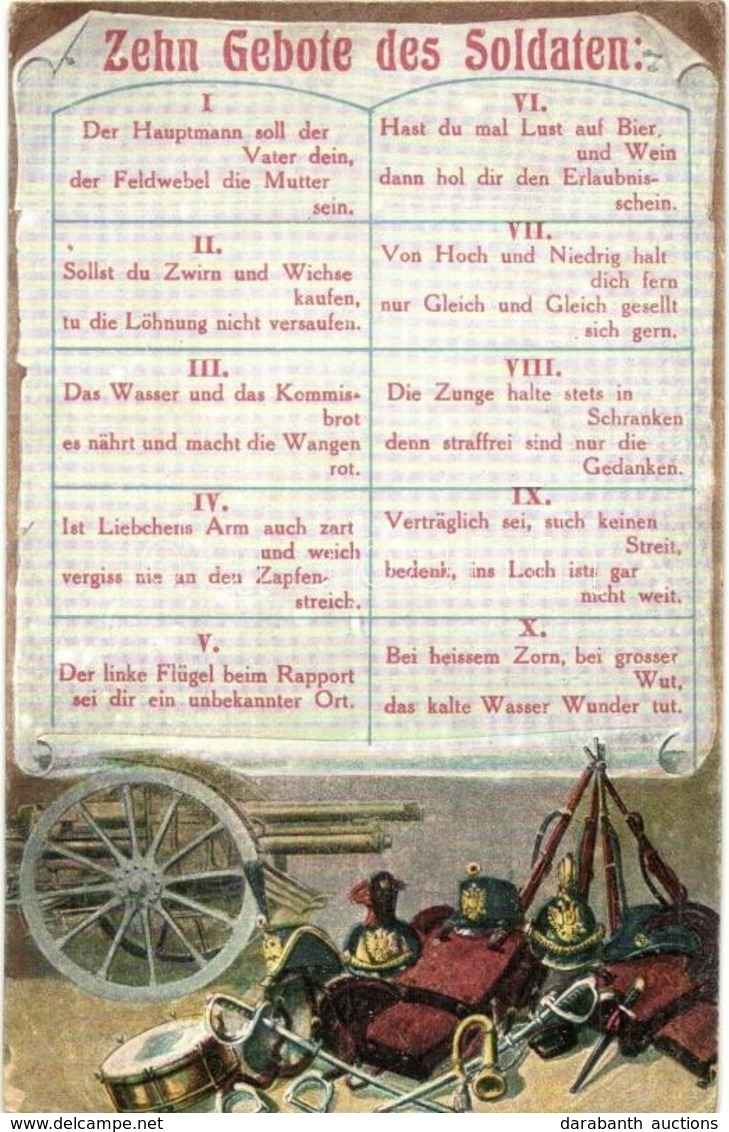 Zehn Gebote des Soldaten:
I
Der Hauptmann soll der
Vater dein,
der Feldwebel die Mutter
sein.
II.
Sollst du Zwirn und Wichse
kaufen,
tu die Löhnung nicht versaufen.
III.
Das Wasser und das Kommis-
brot
es nährt und macht die Wangen
rot.
IV.
Ist Liebchens Arm auch zart
und weich
vergiss nie an den Zapfen-
streich.
V.
Der linke Flügel beim Rapport
sei dir ein unbekannter Ort.
VI.
Hast du mal Lust auf Bier,
und Wein
dann hol dir den Erlaubnis-
schein.
VII.
Von Hoch und Niedrig halt
dich fern
nur Gleich und Gleich gesellt
sich gern.
VIII.
Die Zunge halte stets in
Schranken
denn straffrei sind nur die
Gedanken.
IX.
Verträglich sei, such keinen
Streit,
bedenk, ins Loch ists gar
nicht weit.
X.
Bei heissem Zorn, bei grosser
Wut,
das kalte Wasser Wunder tut.
www.delcampe.net
darabanth auctions